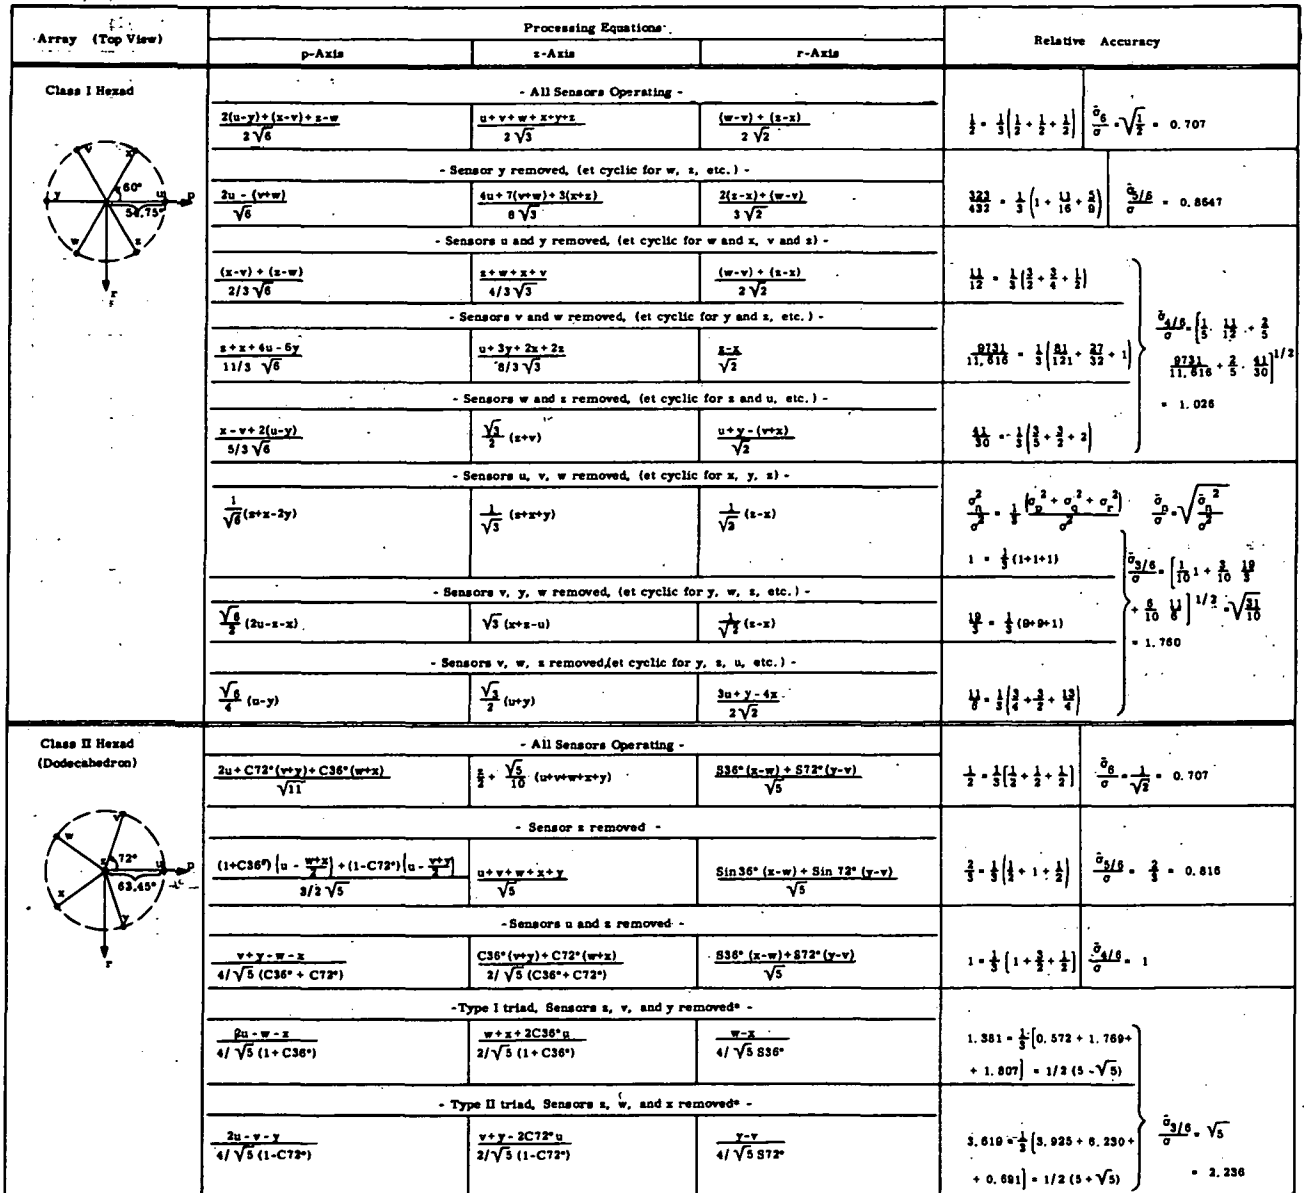 Array (Top View)
Processing Equations
Relative Accuracy
p-Axis z-Axis r-Axis
Class I Hexad
y v x u p w z r
60°
54.75°
- All Sensors Operating -
2(u-y)+(x-v)+z-w / 2√6
u+v+w+x+y+z / 2√3
(w-v) + (z-x) / 2√2
1/2 = 1/3(1/2 + 1/2 + 1/2)
σ̄6/σ = √1/2 = 0.707
- Sensor y removed, (et cyclic for w, z, etc.) -
2u - (v+w) / √6
4u + 7(v+w) + 3(x+z) / 8√3
2(z-x) + (w-v) / 3√2
323/432 = 1/3 (1 + 11/16 + 5/9)
σ̄5/6 / σ = 0.8647
- Sensors u and y removed, (et cyclic for w and x, v and z) -
(x-v) + (z-w) / 2/3 √6
z+w+x+v / 4/3 √3
(w-v) + (z-x) / 2√2
11/12 = 1/3(3/2 + 3/4 + 1/2)
- Sensors v and w removed, (et cyclic for y and z, etc.) -
z+x+4u-6y / 11/3 √6
u+3y+2x+2z / 8/3 √3
z-x / √2
9731/11,616 = 1/3(81/121 + 27/32 + 1)
σ̄4/6 / σ = [1/5 · 11/12 + 2/5
9731/11,616 + 2/5 · 41/30]^1/2
= 1.026
- Sensors w and z removed, (et cyclic for z and u, etc.) -
x-v+2(u-y) / 5/3 √6
√3/2 (z+v)
u+y-(v+x) / √2
41/30 = 1/3(3/5 + 3/2 + 2)
- Sensors u, v, w removed, (et cyclic for x, y, z) -
1/√6 (z+x-2y)
1/√3 (z+x+y)
1/√2 (z-x)
σn²/σ² = 1/3 (σp² + σq² + σr²)/σ²
σ̄n/σ = √σ̄n²/σ²
1 = 1/3 (1+1+1)
- Sensors v, y, w removed, (et cyclic for y, w, z, etc.) -
√6/2 (2u-z-x)
√3 (x+z-u)
1/√2 (z-x)
19/3 = 1/3 (9+9+1)
σ̄3/6 / σ = [1/10 1 + 3/10 19/3
+ 6/10 11/6]^1/2 = √31/10
= 1.760
- Sensors v, w, z removed, (et cyclic for y, z, u, etc.) -
√6/4 (u-y)
√3/2 (u+y)
3u+y-4x / 2√2
11/6 = 1/3(3/4 + 3/2 + 13/4)
Class II Hexad
(Dodecahedron)
w v z u p x y r
72°
63.45°
- All Sensors Operating -
2u+C72°(v+y)+C36°(w+x) / √11
z/2 + √5/10 (u+v+w+x+y)
S36°(x-w)+S72°(y-v) / √5
1/2 = 1/3[1/2 + 1/2 + 1/2]
σ̄6/σ = 1/√2 = 0.707
- Sensor z removed -
(1+C36°){u - w+x/2} + (1-C72°){u - v+y/2} / 3/2 √5
u+v+w+x+y / √5
Sin 36° (x-w) + Sin 72° (y-v) / √5
2/3 = 1/3(1/2 + 1 + 1/2)
σ̄5/6 / σ = 2/3 = 0.816
- Sensors u and z removed -
v+y-w-x / 4/√5 (C36° + C72°)
C36°(v+y) + C72°(w+x) / 2/√5 (C36° + C72°)
S36° (x-w) + S72° (y-v) / √5
1 = 1/3 [1 + 3/2 + 1/2]
σ̄4/6 / σ = 1
- Type I triad, Sensors z, v, and y removed* -
2u-w-x / 4/√5 (1+C36°)
w+x+2C36°u / 2/√5 (1+C36°)
w-x / 4/√5 S36°
1.381 = 1/3 [0.572 + 1.769+
+ 1.807] = 1/2 (5 - √5)
- Type II triad, Sensors z, w, and x removed* -
2u-v-y / 4/√5 (1-C72°)
v+y-2C72°u / 2/√5 (1-C72°)
y-v / 4/√5 S72°
3.619 = 1/3 [3.925 + 6.230 +
+ 0.691] = 1/2 (5 + √5)
σ̄3/6 / σ = √5
= 2.236